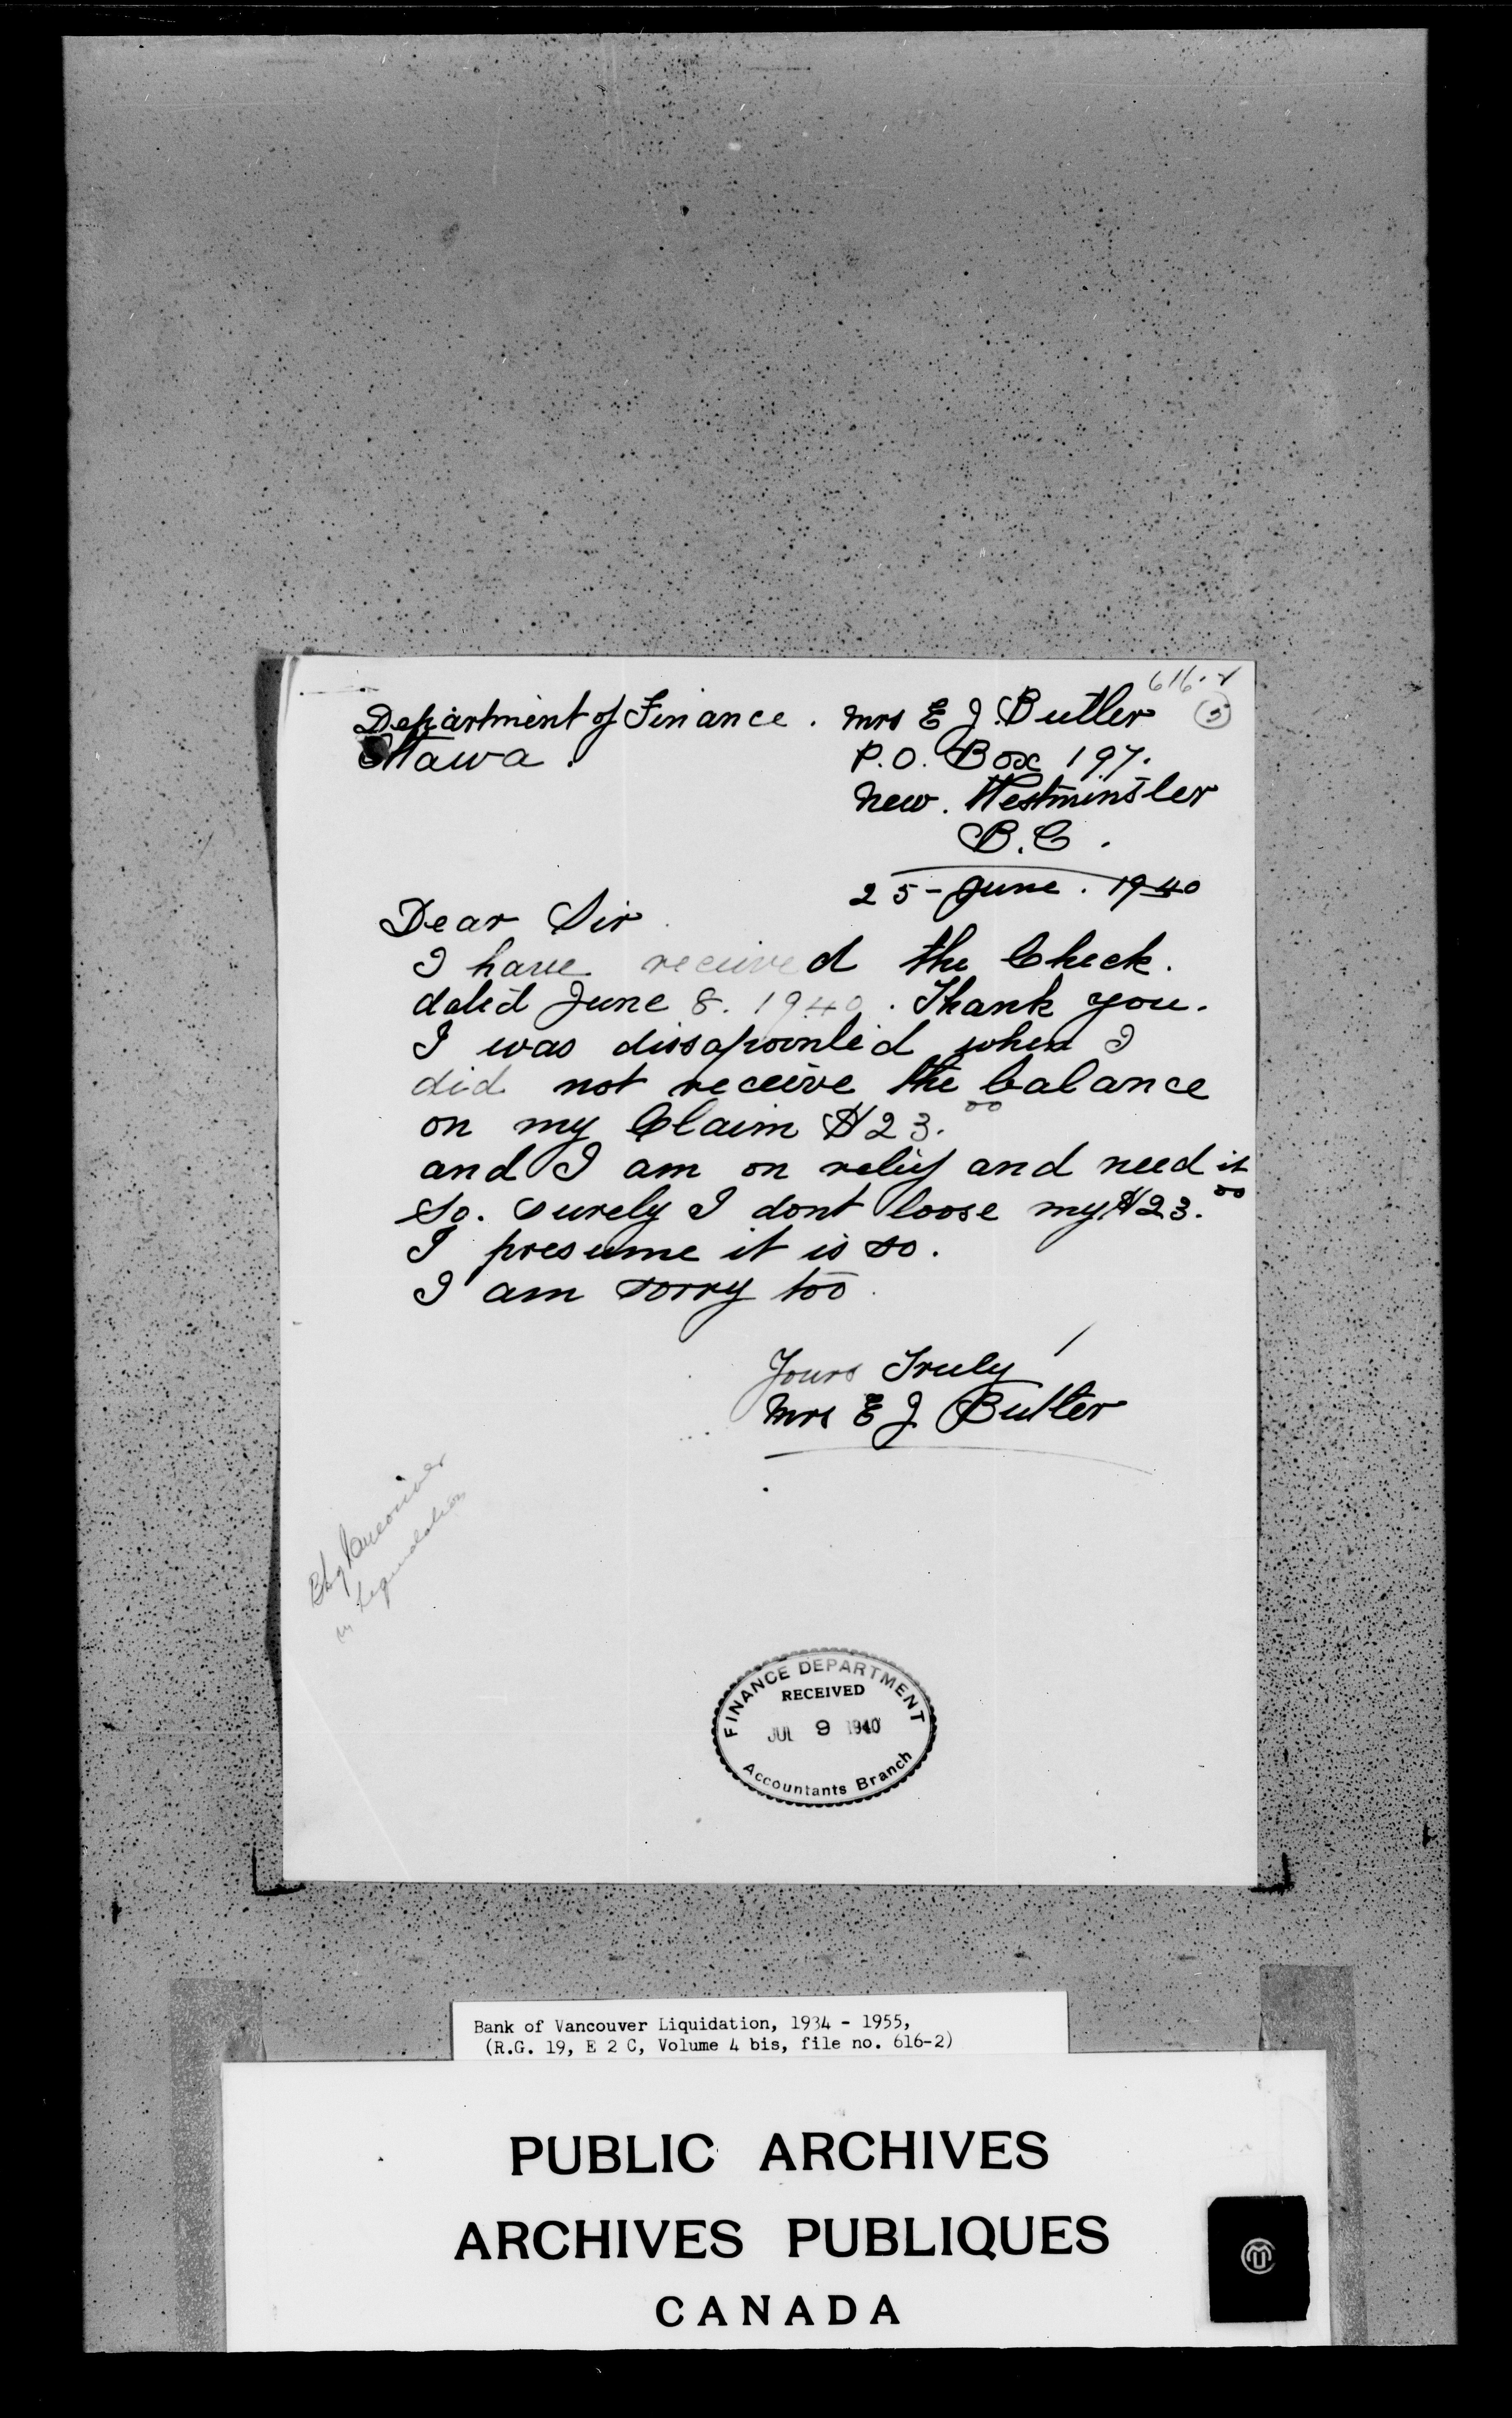 616-2
Department of Finance. Mrs E J. Butler
5
Ottawa. P.O. Box 197.
New. Westminster
B.C.
25-June. 1940
Dear Sir
I have received the Check.
dated June 8. 1940. Thank you.
I was dissapointed when I
did not receive the balance
on my Claim $23.00
and I am on relief and need it
So. surely I dont loose my $23.00
I presume it is so.
I am sorry too.
Yours Truly
Mrs E J Butler
Bk of Vancouver
in Liquidation
FINANCE DEPARTMENT
RECEIVED
JUL 9 1940
Accountants Branch
Bank of Vancouver Liquidation, 1934 - 1955,
(R.G. 19, E 2 C, Volume 4 bis, file no. 616-2)
PUBLIC ARCHIVES
ARCHIVES PUBLIQUES
CANADA